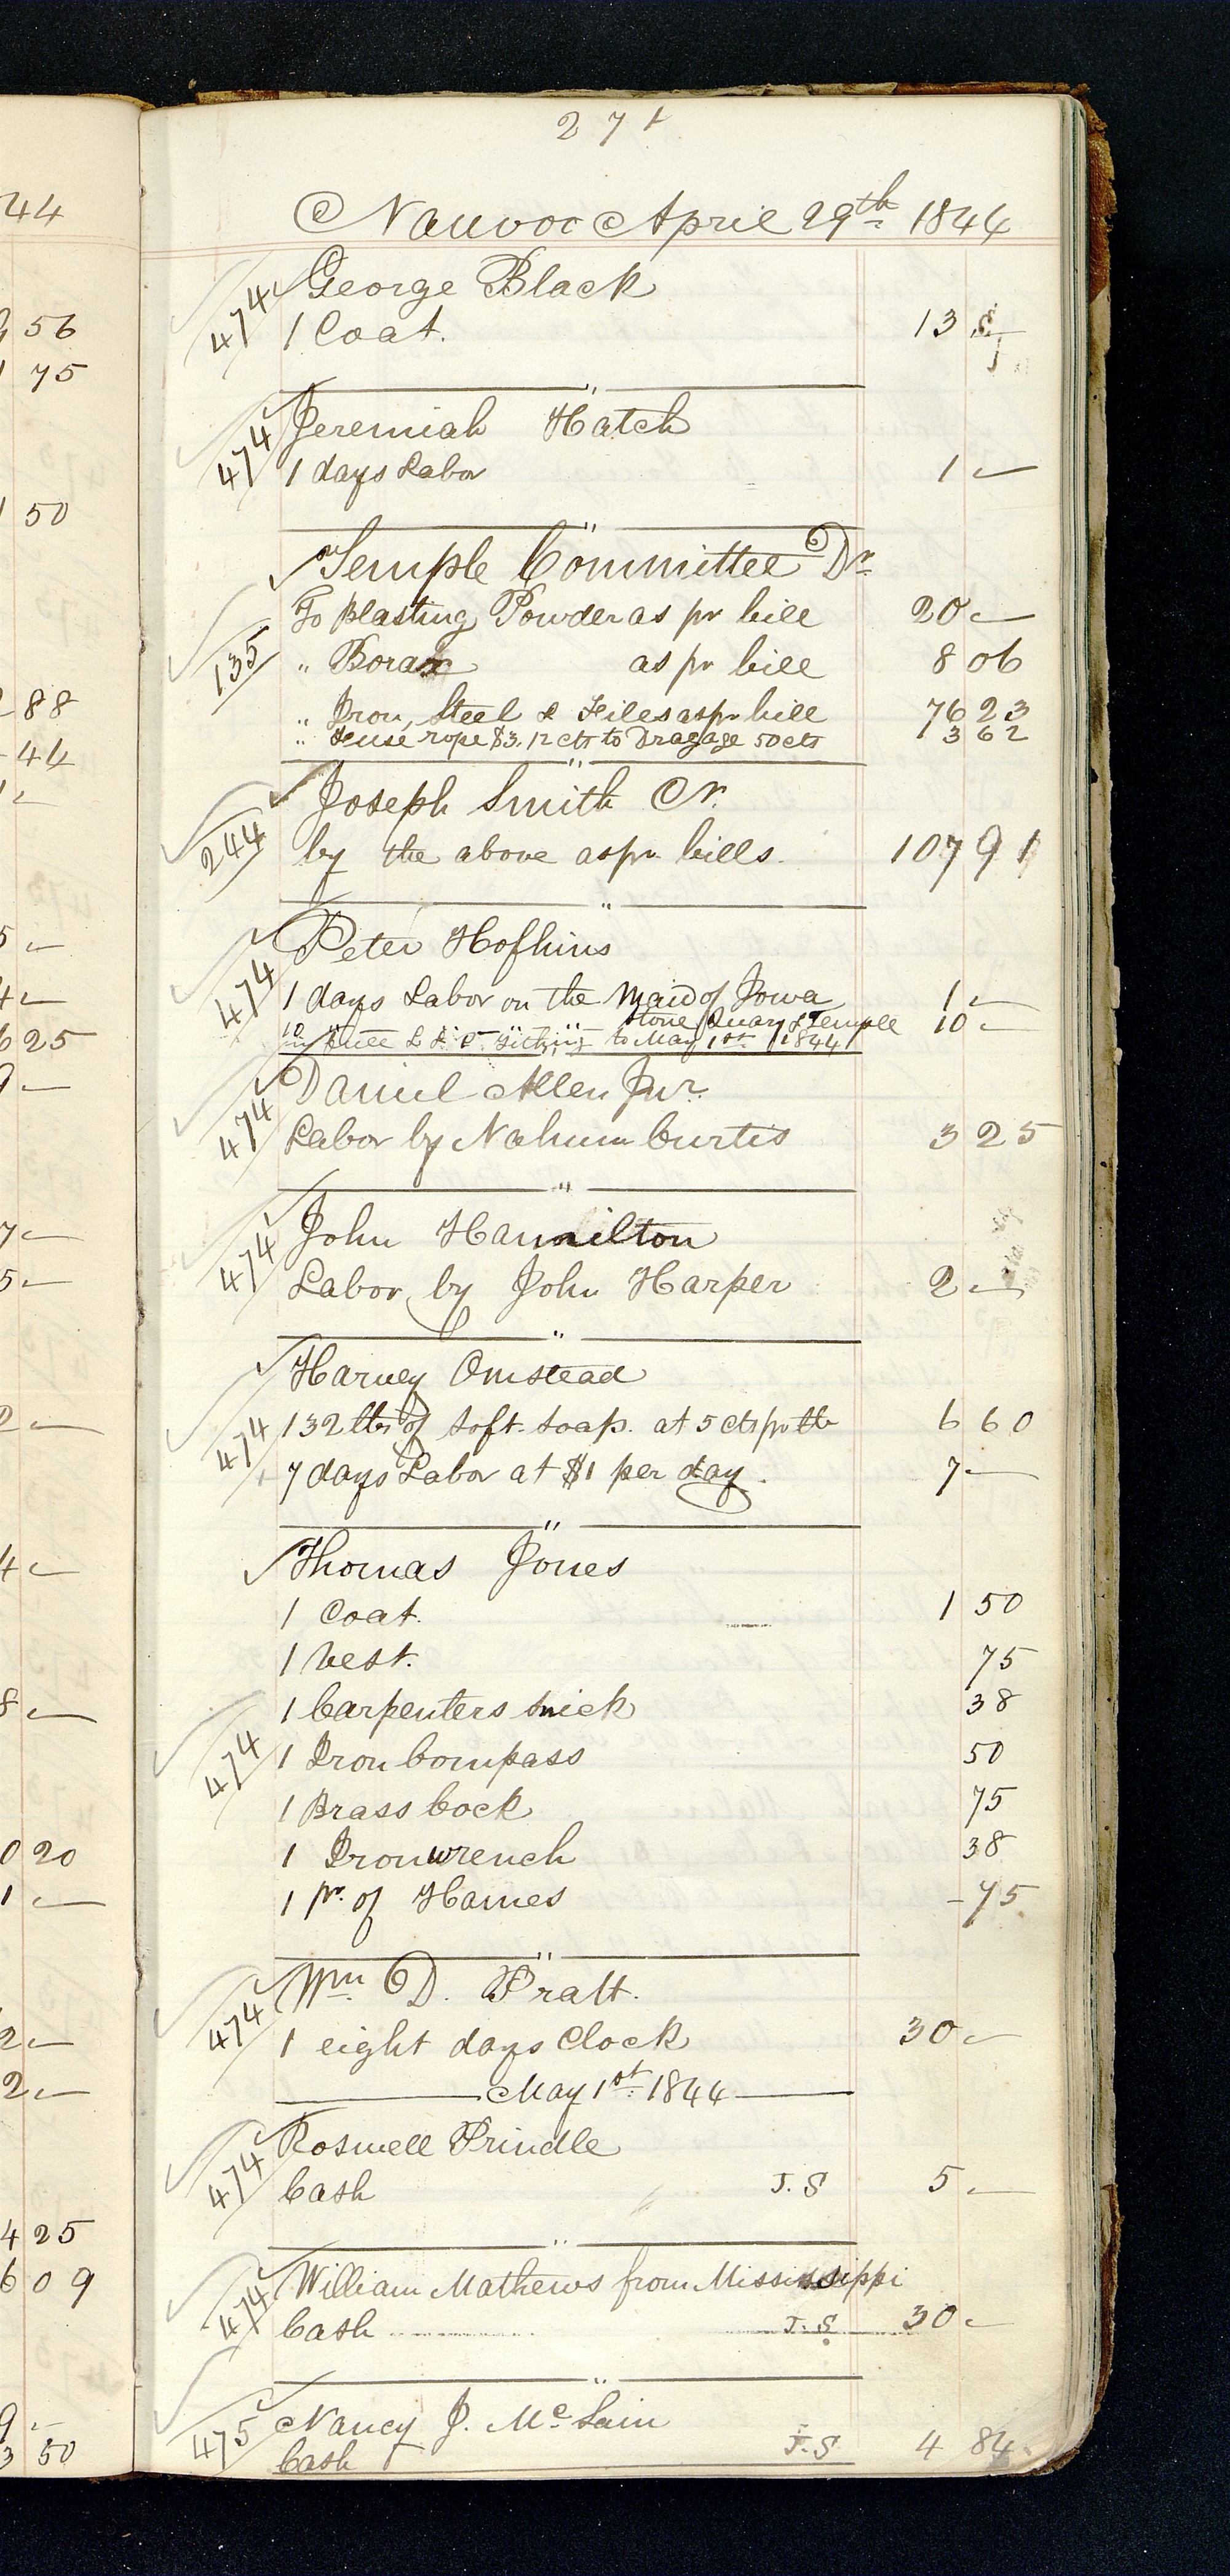 271
Nauvoo April 29th 1844
474 George Black
1 Coat. 13
474 Jeremiah Hatch
1 days Labor 1 —
"
Temple Committee Dr
To Blasting Powder as pr bill 20 —
135 " Borax as pr bill 8 06
" Iron, Steel & Files as pr bill 76 23
" rope $3.12 cts to Dragage 50 cts 3 62
"
Joseph Smith Cr.
244 by the above as pr bills. 107 91
"
474 Peter Hofhins
1 days Labor on the Maid of Iowa 1 —
Stone Quary & Temple 10 —
10 to May 1st 1844
474 Daniel Allen Jur.
Labor by Nahum Curtis 3 25
"
474 John Hamilton
Labor by John Harper 2 —
"
Harvey Omstead
474 132 lbs of Soft Soap. at 5 cts pr lb 6 60
7 days Labor at $1 per day. 7 —
"
Thomas Jones
1 Coat. 1 50
1 Vest. 75
1 Carpenters 38
474 1 Iron Compass 50
1 Brass Cock 75
1 Iron wrench 38
1 pr. of Hames - 75
"
474 Wm D. Pratt.
1 eight days Clock 30 —
May 1st 1844
474 Roswell Prindle
Cash J. S 5 —
"
474 William Mathews from Mississippi
Cash J. S 30 —
"
475 Nancy J. Mc
Cash J. S 4 84
44
56
75
50
88
44
25
20
4 25
6 09
3 50